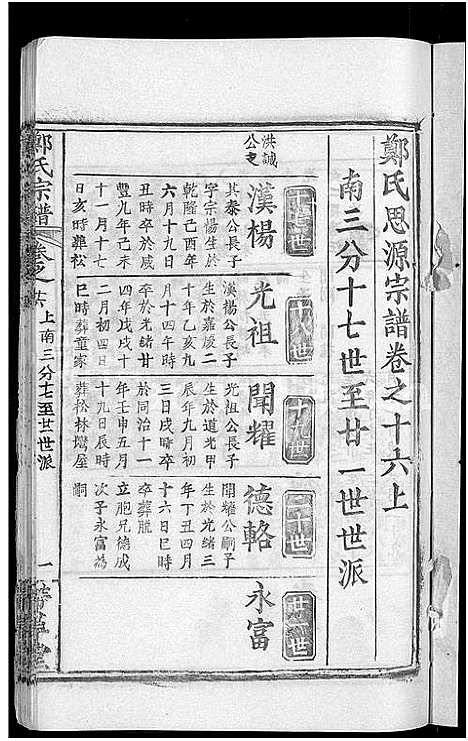 鄭氏思源宗譜卷之十六上
南三分十七世至廿一世世派
十七世
十八世
十九世
二十世
廿一世
洪誠
公支
漢楊
其泰公長子
字宗楊生於
乾隆己酉年
六月十九日
丑時卒於咸
豐九年己未
十一月十七
日亥時葬松
光祖
漢楊公長子
生於嘉慶二
十年乙亥九
月十四午時
卒於光緒廿
四年戊戌十
二月初四日
巳時葬童家
聞耀
光祖公長子
生於道光甲
辰年九月初
三日戌時卒
於同治十一
年壬申五月
十九日辰時
葬松林塆屋
德輅
聞耀公嗣子
生於光緒三
年丁丑四月
十六日巳時
卒葬脫
立胞兄德成
次子永富為
嗣
永富
鄭氏宗譜
卷之十六上南三分十七至廿一世派
一